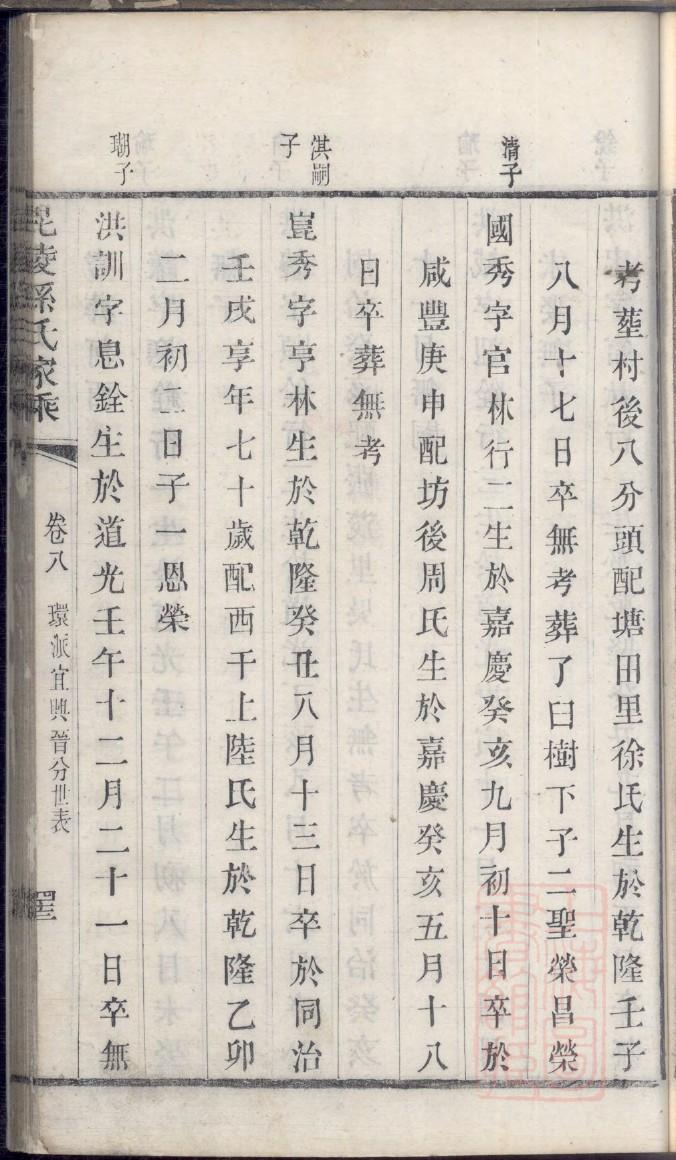 考塟村後八分頭配塘田里徐氏生於乾隆壬子
八月十七日卒無考葬了臼樹下子二聖榮昌榮
清子
國秀字官林行二生於嘉慶癸亥九月初十日卒於
咸豐庚申配坊後周氏生於嘉慶癸亥五月十八
日卒葬無考
淇嗣
子
崑秀字亨林生於乾隆癸丑八月十三日卒於同治
壬戌享年七十歲配西干上陸氏生於乾隆乙卯
二月初二日子一恩榮
瑚子
洪訓字息銓生於道光壬午十二月二十一日卒無
毘陵孫氏家乘
卷八
環派宜興晉分世表